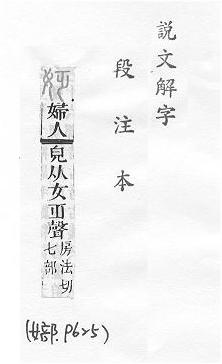 說文解字
段注本
姂
婦人皃从女乏聲
房法切
七部
(女部. P625)